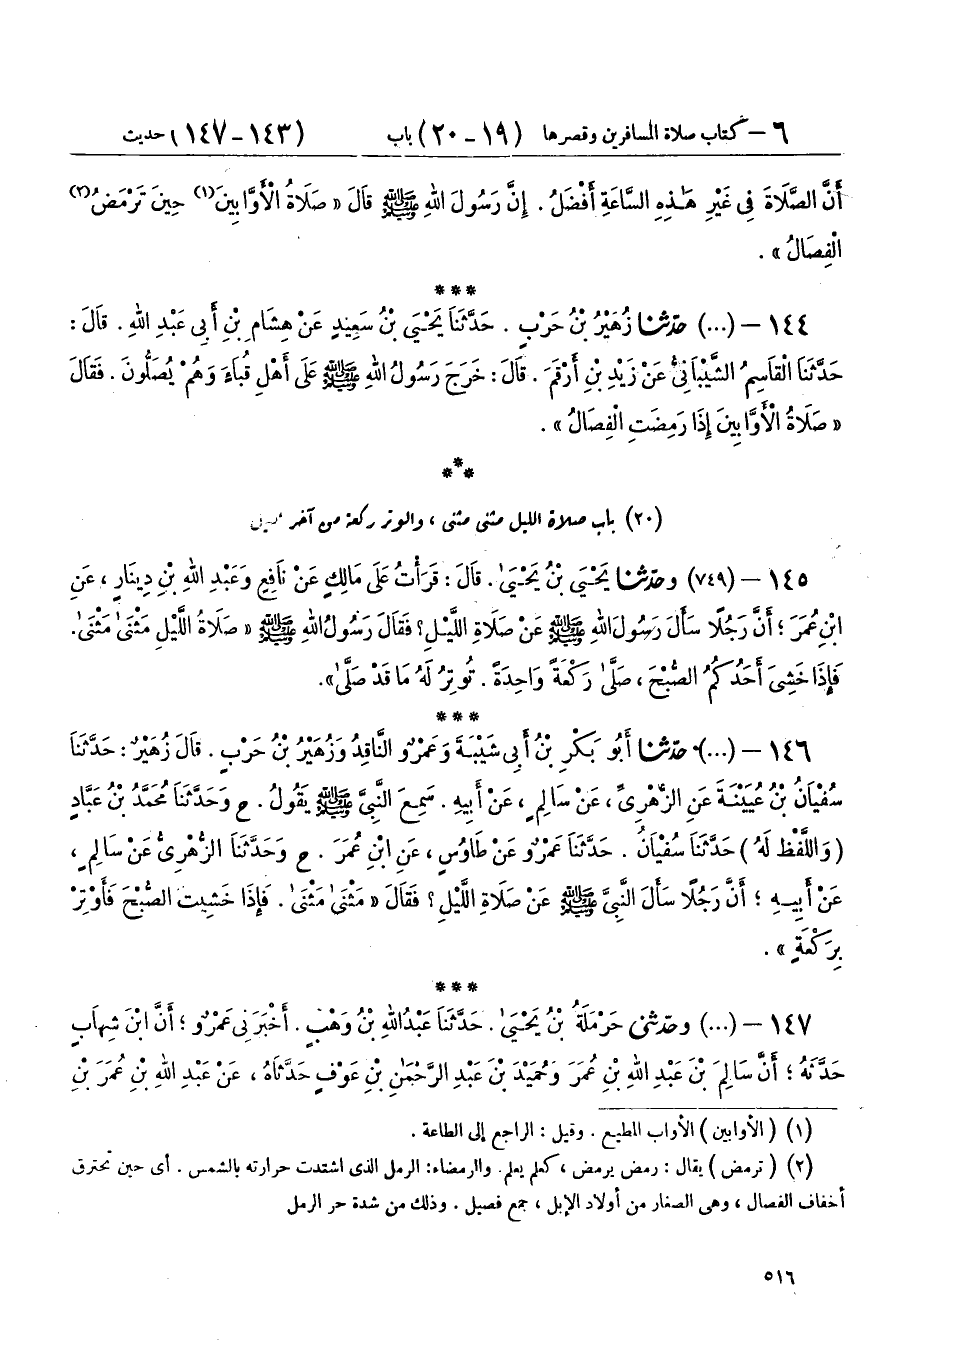 ٦ – كتاب صلاة المسافرين وقصرها (١٩ – ٢٠) باب (١٤٣ – ١٤٧) حديث
أَنَّ الصَّلَاةَ فِى غَيْرِ هَـٰذِهِ السَّاعَةِ أَفْضَلُ . إِنَّ رَسُولَ اللهِ ﷺ قَالَ « صَلَاةُ الْأَوَّابِينَ(١) حِينَ تَرْمَضُ(٢)
الْفِصَالُ » .
***
١٤٤ – (...) حدّثنا زُهَيْرُ بْنُ حَرْبٍ . حَدَّثَنَا يَحْيَىٰ بْنُ سَعِيدٍ عَنْ هِشَامِ بْنِ أَبِى عَبْدِ اللهِ . قَالَ :
حَدَّثَنَا الْقَاسِمُ الشَّيْبَانِىُّ عَنْ زَيْدِ بْنِ أَرْقَمَ . قَالَ : خَرَجَ رَسُولُ اللهِ ﷺ عَلَى أَهْلِ قُبَاءَ وَهُمْ يُصَلُّونَ . فَقَالَ
« صَلَاةُ الْأَوَّابِينَ إِذَا رَمِضَتِ الْفِصَالُ » .
***
(٢٠) باب صلاة الليل مثنى مثنى ، والوتر ركعة من آخر
١٤٥ – (٧٤٩) وحدّثنا يَحْيَىٰ بْنُ يَحْيَىٰ . قَالَ : قَرَأْتُ عَلَى مَالِكٍ عَنْ نَافِعٍ وَعَبْدِ اللهِ بْنِ دِينَارٍ ، عَنِ
ابْنِ عُمَرَ ؛ أَنَّ رَجُلًا سَأَلَ رَسُولَ اللهِ ﷺ عَنْ صَلَاةِ اللَّيْلِ ؟ فَقَالَ رَسُولُ اللهِ ﷺ « صَلَاةُ اللَّيْلِ مَثْنَىٰ مَثْنَىٰ.
فَإِذَا خَشِىَ أَحَدُكُمُ الصُّبْحَ ، صَلَّىٰ رَكْعَةً وَاحِدَةً . تُوتِرُ لَهُ مَا قَدْ صَلَّىٰ».
***
١٤٦ – (...) حدّثنا أَبُو بَكْرِ بْنُ أَبِى شَيْبَةَ وَعَمْرٌو النَّاقِدُ وَزُهَيْرُ بْنُ حَرْبٍ . قَالَ زُهَيْرٌ : حَدَّثَنَا
سُفْيَانُ بْنُ عُيَيْنَةَ عَنِ الزُّهْرِىِّ ، عَنْ سَالِمٍ ، عَنْ أَبِيهِ . سَمِعَ النَّبِىَّ ﷺ يَقُولُ . ح وَحَدَّثَنَا مُحَمَّدُ بْنُ عَبَّادٍ
( وَاللَّفْظُ لَهُ ) حَدَّثَنَا سُفْيَانُ . حَدَّثَنَا عَمْرٌو عَنْ طَاوُسٍ ، عَنِ ابْنِ عُمَرَ . ح وَحَدَّثَنَا الزُّهْرِىُّ عَنْ سَالِمٍ ،
عَنْ أَبِيهِ ؛ أَنَّ رَجُلًا سَأَلَ النَّبِىَّ ﷺ عَنْ صَلَاةِ اللَّيْلِ ؟ فَقَالَ « مَثْنَىٰ مَثْنَىٰ . فَإِذَا خَشِيتَ الصُّبْحَ فَأَوْتِرْ
بِرَكْعَةٍ » .
***
١٤٧ – (...) وحدّثنى حَرْمَلَةُ بْنُ يَحْيَىٰ . حَدَّثَنَا عَبْدُ اللهِ بْنُ وَهْبٍ . أَخْبَرَنِى عَمْرٌو ؛ أَنَّ ابْنَ شِهَابٍ
حَدَّثَهُ ؛ أَنَّ سَالِمَ بْنَ عَبْدِ اللهِ بْنِ عُمَرَ وَحُمَيْدَ بْنَ عَبْدِ الرَّحْمَـٰنِ بْنِ عَوْفٍ حَدَّثَاهُ ، عَنْ عَبْدِ اللهِ بْنِ عُمَرَ بْنِ
(١) ( الأوابين ) الأواب المطيع . وقيل : الراجع إلى الطاعة .
(٢) ( ترمض ) يقال : رمض يرمض ، كعلم يعلم. والرمضاء: الرمل الذى اشتدت حرارته بالشمس . أى حين تحترق
أخفاف الفصال ، وهى الصغار من أولاد الإبل ، جمع فصيل . وذلك من شدة حر الرمل
٥١٦